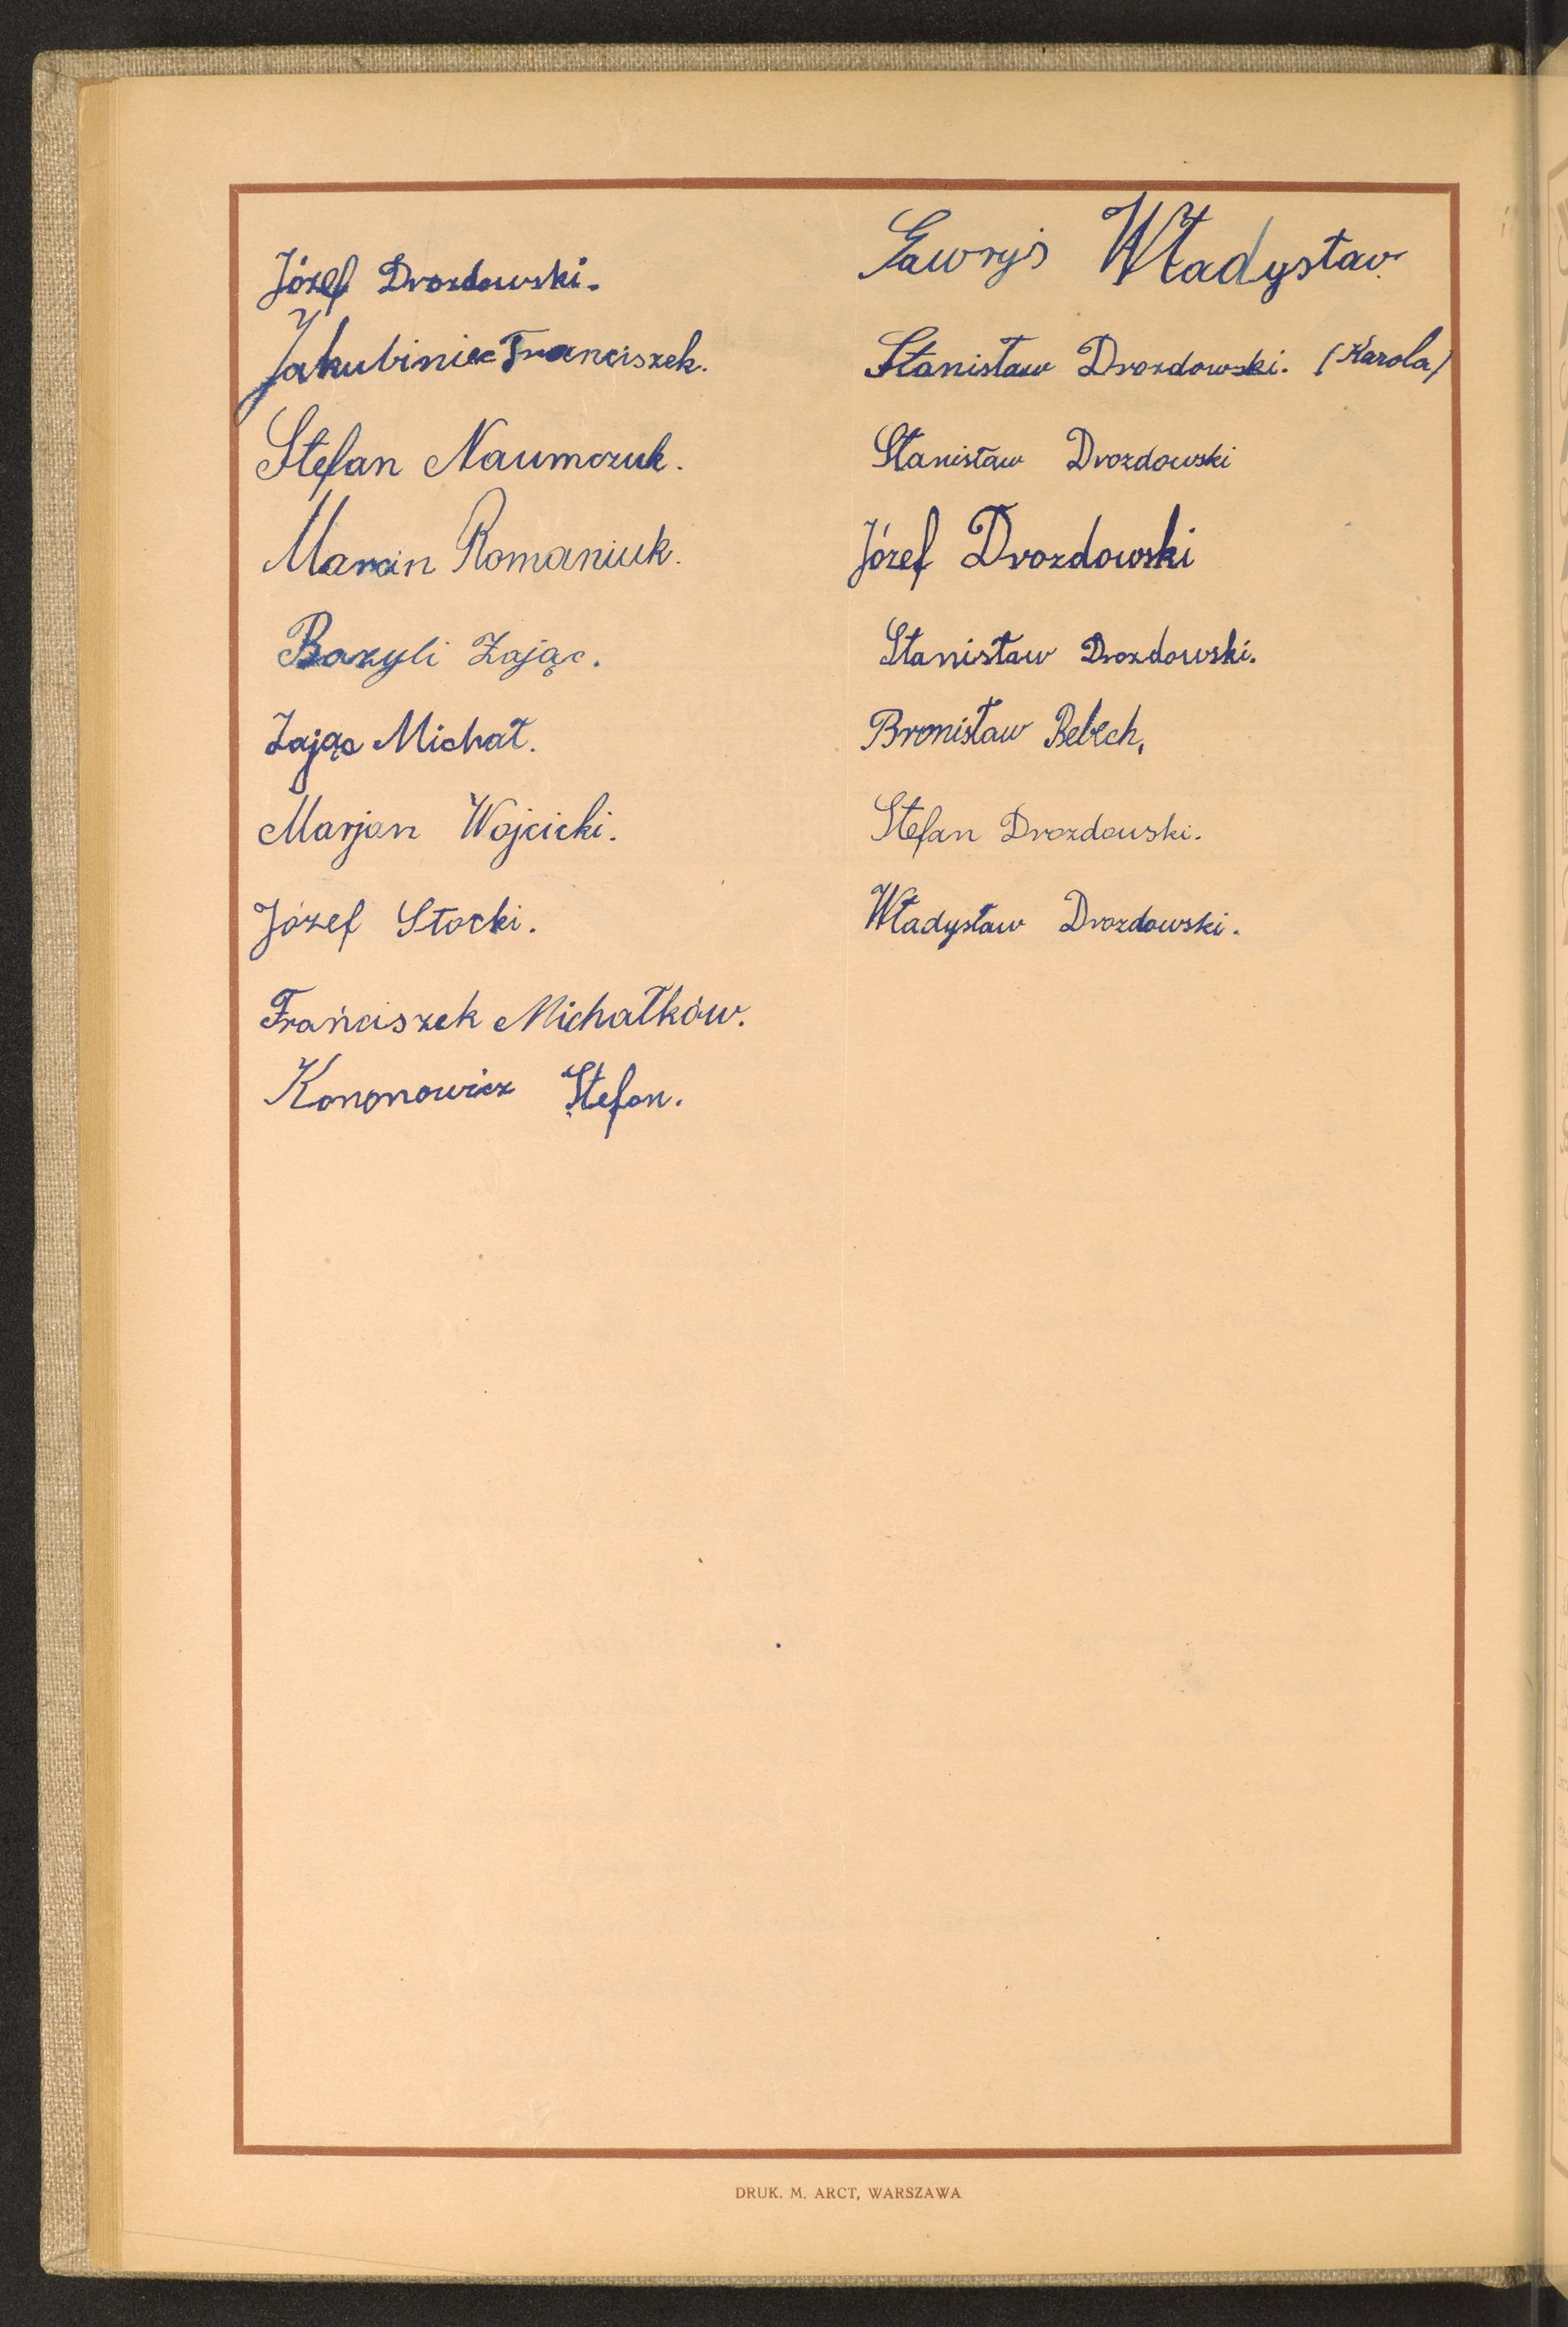 Józef Drozdowski.
Jakubiniec Franciszek.
Stefan Naumczuk.
Marcin Romaniuk.
Bazyli Zając.
Zając Michał.
Marjan Wojcicki.
Józef Słocki.
Frańciszek Michałków.
Kononowicz Stefan.
Gawryś Władysław
Stanisław Drozdowski. (Karola)
Stanisław Drozdowski
Józef Drozdowski
Stanisław Drozdowski.
Bronisław Bebech,
Stefan Drozdowski.
Władysław Drozdowski.
DRUK. M. ARCT, WARSZAWA